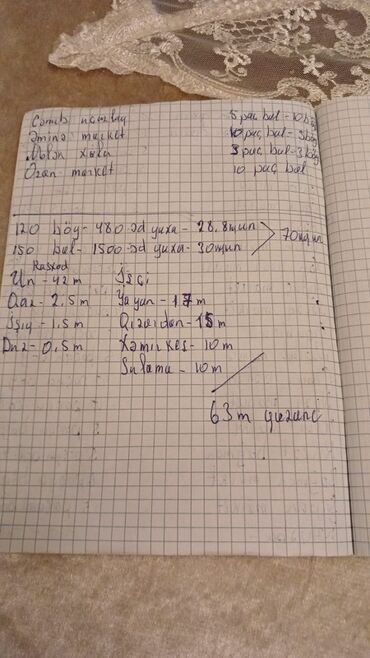 market 5 paç bal - 10 böy
Əminə market 10 paç bal - 3 böy
3 paç bal - 3 böy
Ozan market 10 paç bal
120 böy - 480 əd yuxa - 28.8 mun
150 bal - 1500 əd yuxa - 30 mun
Rasxod
Un - 42 m İşçi
Qaz - 2,5 m Yayan - 17 m
İşıq - 1,5 m Qızardan - 15 m
0,5 m Xəmirkeş - 10 m
Sulama - 10 m
63 m qazanc